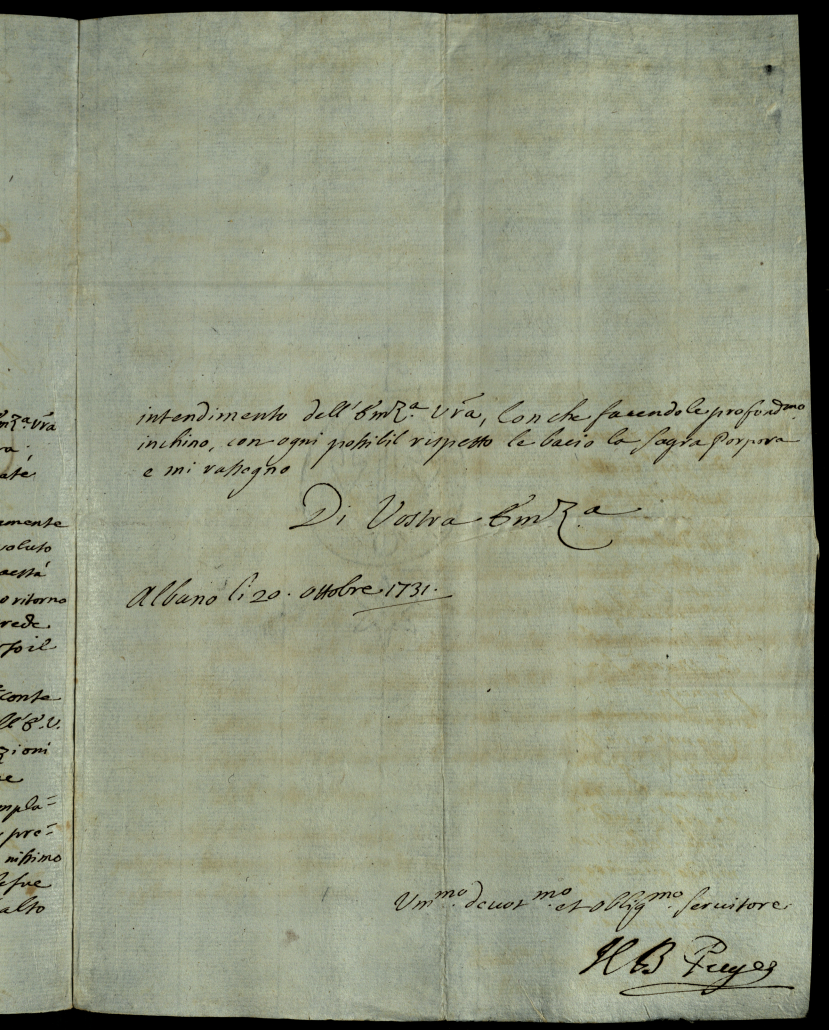 mza vra
ra;
ate
amente
voluto
aestà
o ritorno
rede
conte
ll'E.V.
zioni
mpla=
pre=
nissimo
alto
intendimento dell'Emza. vra, Con che facendole profondmo.
inchino, con ogni possibil rispetto le bacio la Sagra Porpora
e mi rassegno
Di Vostra Emza.
Albano li 20. Ottobre 1731.
Ummo. devotmo. et obligmo. servitore
H B